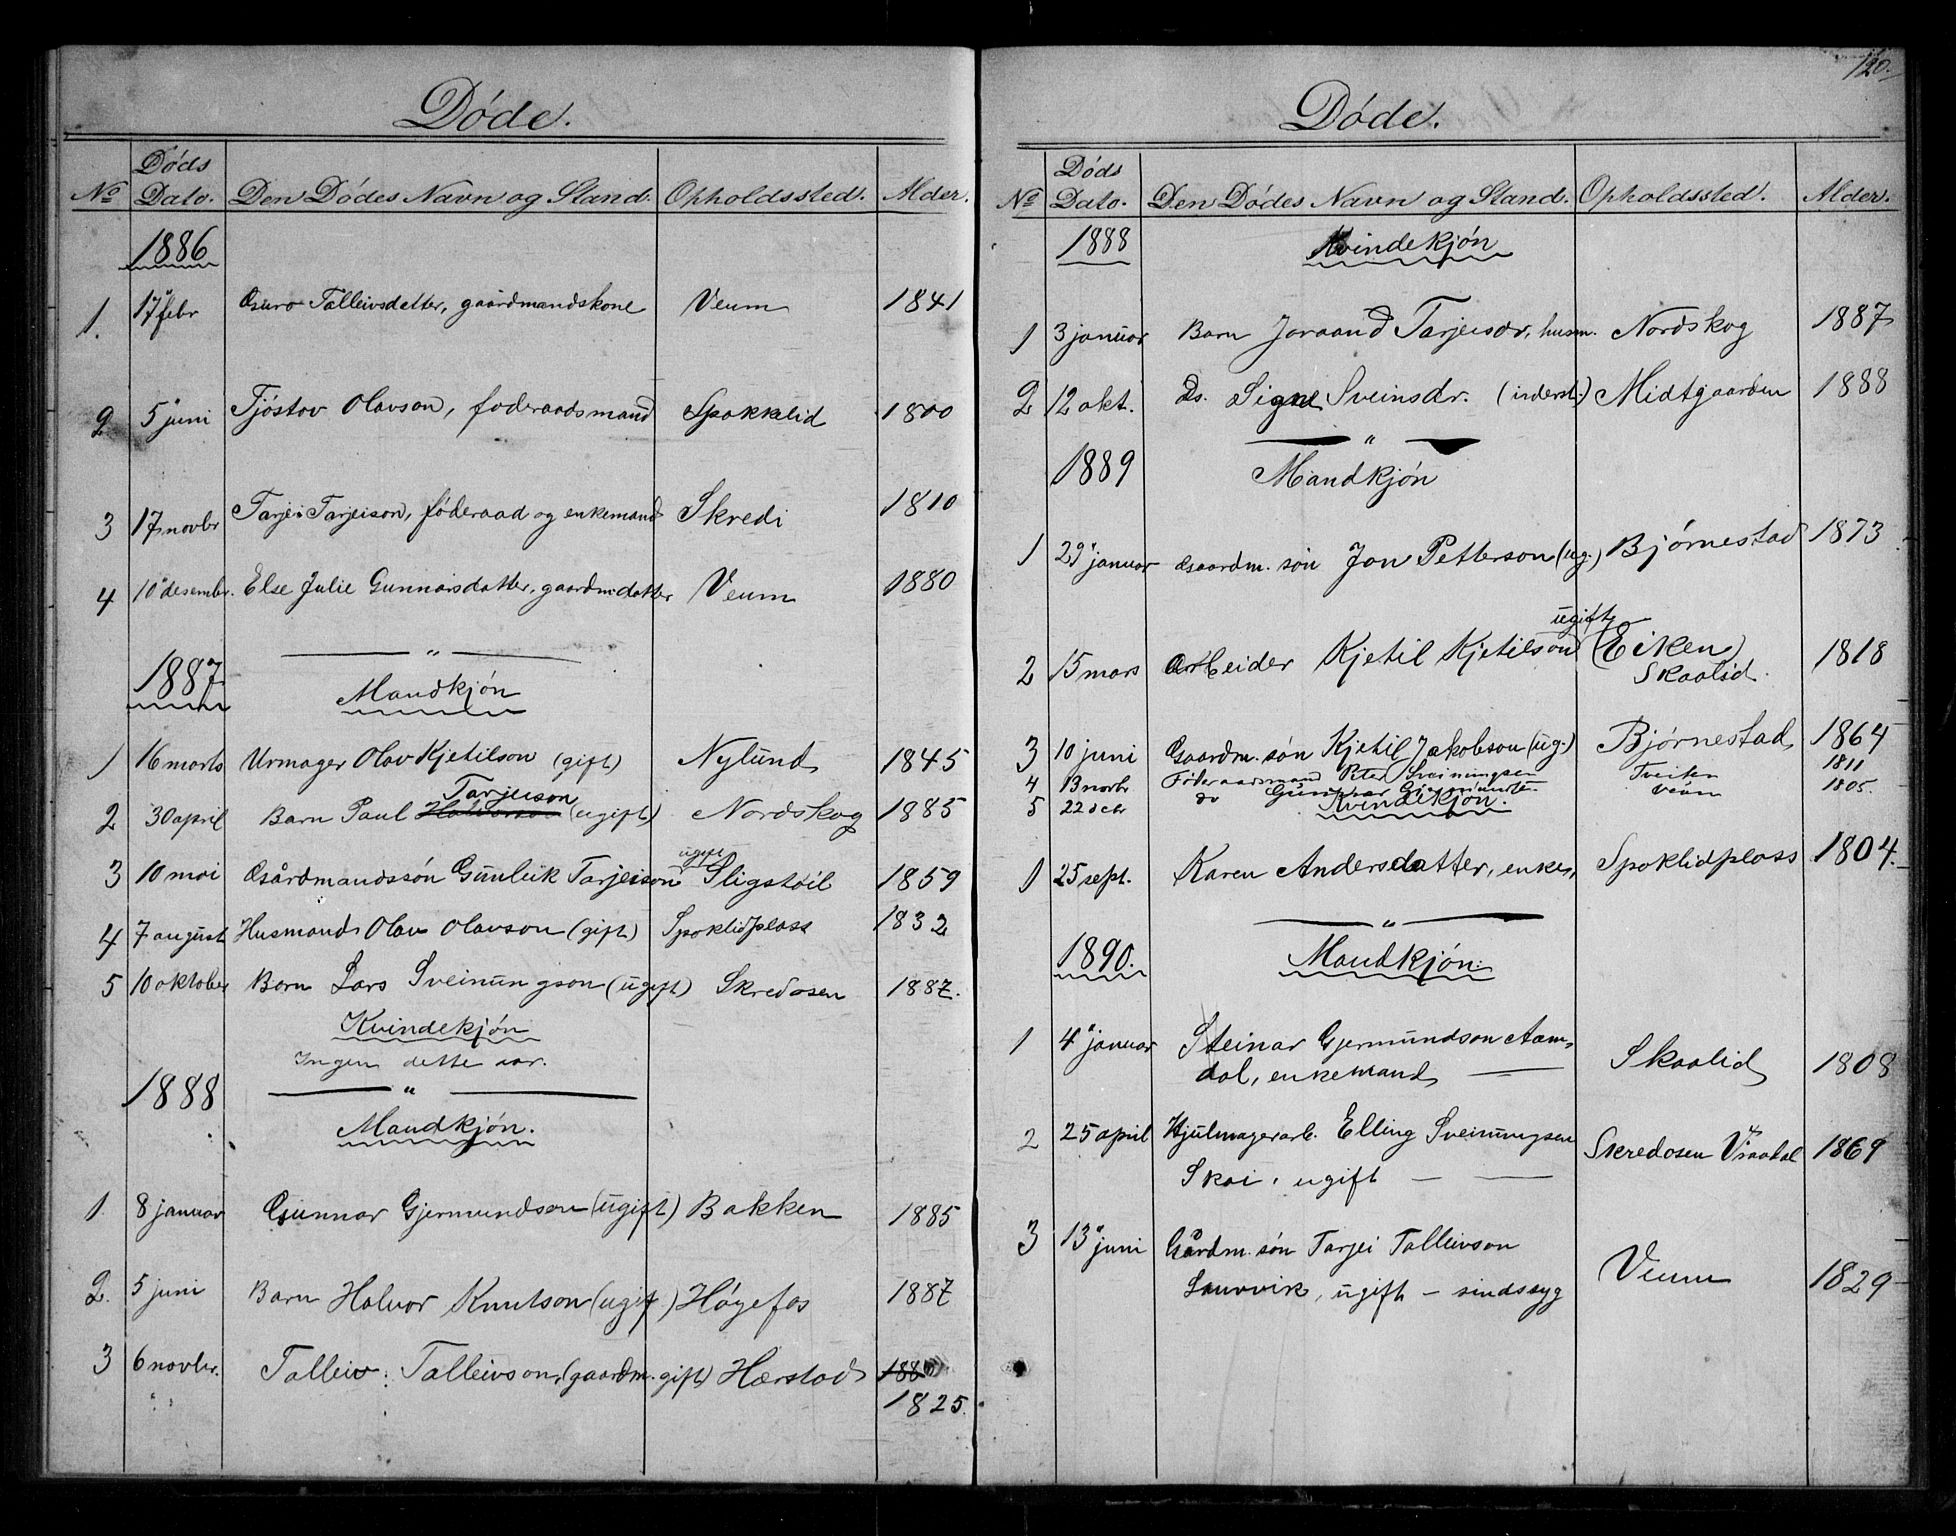 Døde.
No Døds Dato. Den Dødes Navn og Stand. Opholdssted. Alder.
1886
1. 17 febr Guro Tølleivsdatter, gaardmandskone Veum 1841
2 5 juni Tjøstov Olavson, foderaadsmand Spokkelid 1800
3 17 novbr Tarjei Tarjeison, føderaad og enkemand Skredi 1810
4 10 desembr. Else Julie Gunnarsdatter, gaardm.datter Veum 1880
1887 Mandkjøn
1 16 marts Urmager Olav Kjetilson (gift) Nylund 1845
Tarjeison
2 30 april Barn Paul (ugift) Nordskog 1885
ugift
3 10 mai Gårdmandssøn Gunleik Tarjeison Sligstøil 1859
4 7 august Husmand Olav Olavson (gift) Spoklidplass 1832
5 10 oktober Barn Lars Sveinungson (ugift) Skredosen 1887.
Kvindekjøn
Ingen dette aar.
1888
Mandkjøn.
1 8 januar Gunnar Gjermundson (ugift) Bakken 1885
2. 5 juni Barn Halvor Knutson (ugift.) Høgefos 1887
3 6 novbr. Talleiv Talleivson, (gaardm. gift) Hærstad 188
1825.
120.
Døde.
No Døds Dato. Den Dødes Navn og Stand. Opholdssted. Alder.
1888 Kvindekjøn
1 3 januar Barn Joraand Tarjeisdr, husm. Nordskog 1887
2 12 okt. Ds. Signe Sveinsdr. (inderst.) Midtgaarden 1888
1889 Mandkjøn
1 29 januar Gaardm. søn Jon Petterson (ug.) Bjørnestad 1873
ugift
2 15 mars Arbeider Kjetil Kjetilson (Eiken) 1818
Skaalid.
3 10 juni Gaardm. søn Kjetil Jakobson (ug.) Bjørnestad 1864
4 13 novbr Føderaadmand Peter Sveinungsen Tveiten 1811
5 22 dcbr do Gunnar Gjermunds. Veum 1805.
Kvindekjøn.
1 25 sept. Karen Andersdatter, enke, Spoklidplass 1804.
1890. Mandkjøn.
1 4 januar Steinar Gjermundson Aam-
dal, enkemand Skaalid 1808
2 25 april Hjulmagerarb. Elling Sveinungsen Skredosen Vraadal 1869
Skai, ugift
3 13 juni Gårdm. søn Tarjei Talleivson
Lauvvik, ugift - sindssyg Veum 1829